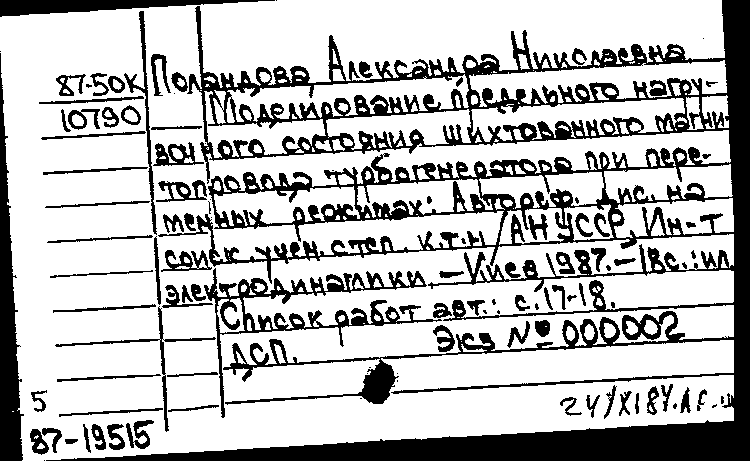 87-50К Поландова, Александра Николаевна
10790 Моделирование предельного нагру-
зочного состояния шихтованного магни-
топровода турбогенератора при пере-
менных режимах: Автореф. дис. на
соиск. учен. степ. к.т.н / АН УССР, Ин-т
электродинамики. — Киев, 1987. — 18с.: ил.
Список работ авт.: с. 17-18.
ДСП. Экз № 000002
5
87-19515